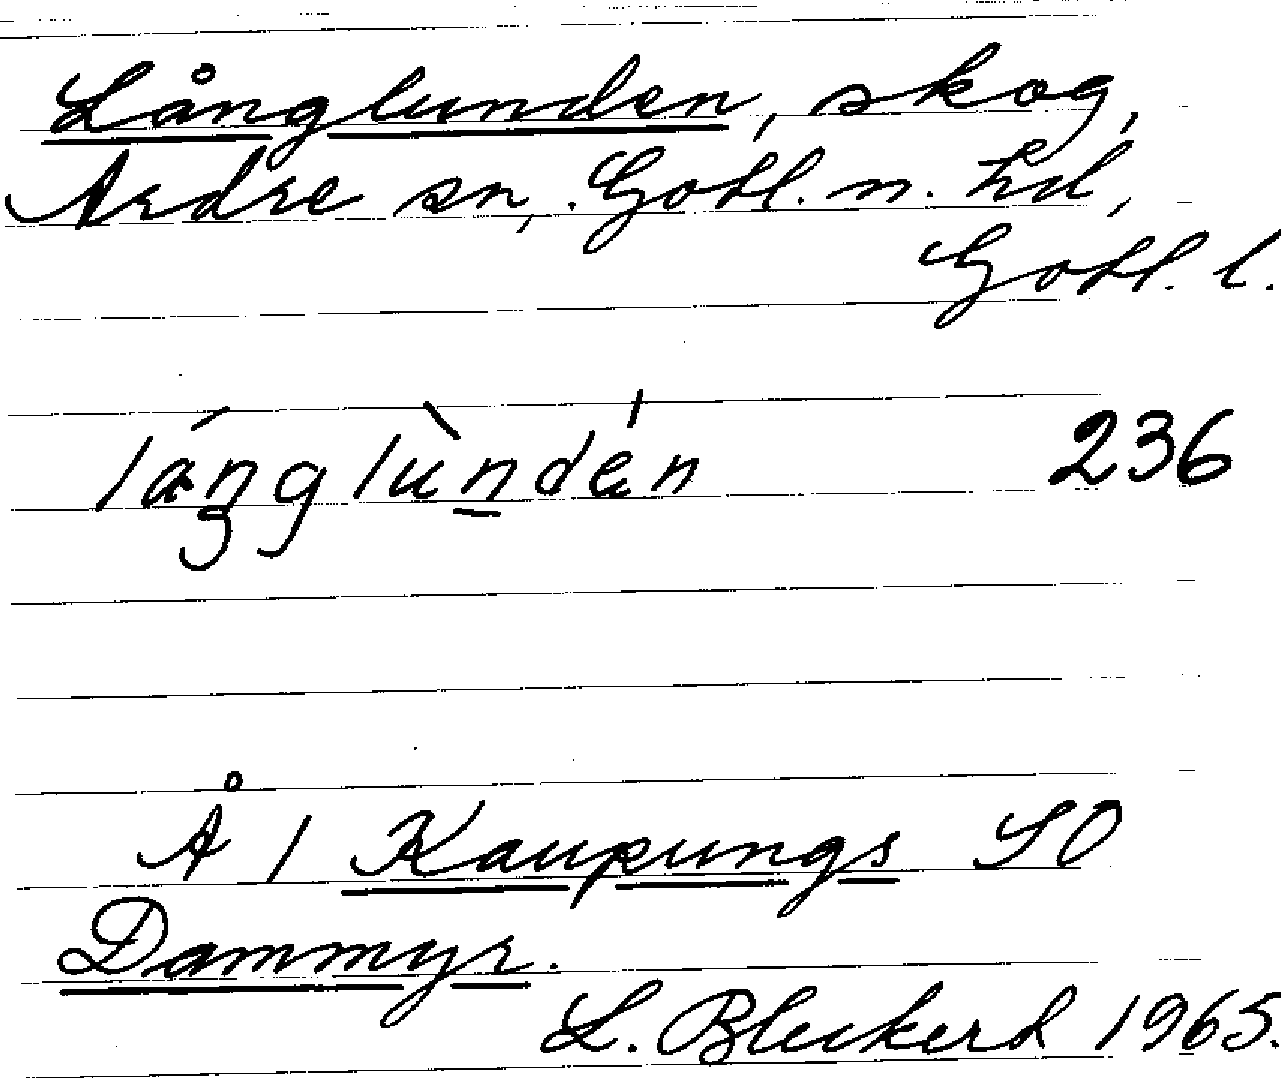 Långlunden, skog,
Ardre sn, Gotl. n. hd,
Gotl. l.
láŋglùndén 236
Å 1 Kaupungs SO
Dammyr.
L. Bleckert 1965.